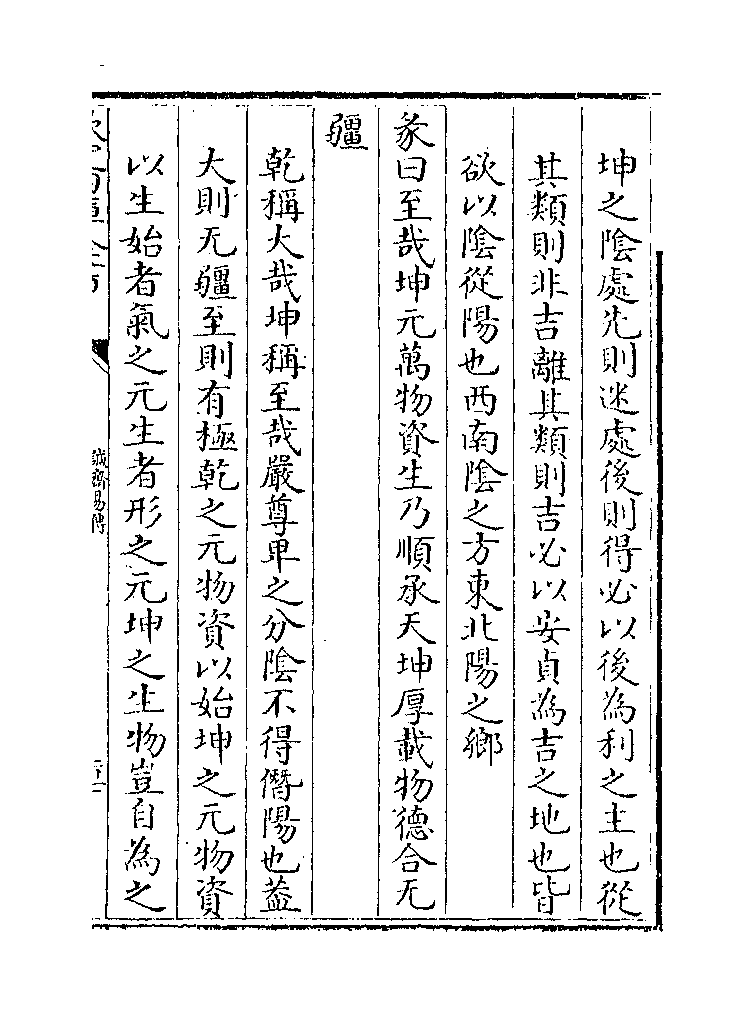 坤之陰處先則迷處後則得必以後為利之主也從
其類則非吉離其類則吉必以安貞為吉之地也皆
欲以陰從陽也西南陰之方東北陽之鄉
彖曰至哉坤元萬物資生乃順承天坤厚載物德合无
疆
乾稱大哉坤稱至哉嚴尊卑之分陰不得僭陽也葢
大則无疆至則有極乾之元物資以始坤之元物資
以生始者氣之元生者形之元坤之生物豈自為之
誠齋易傳